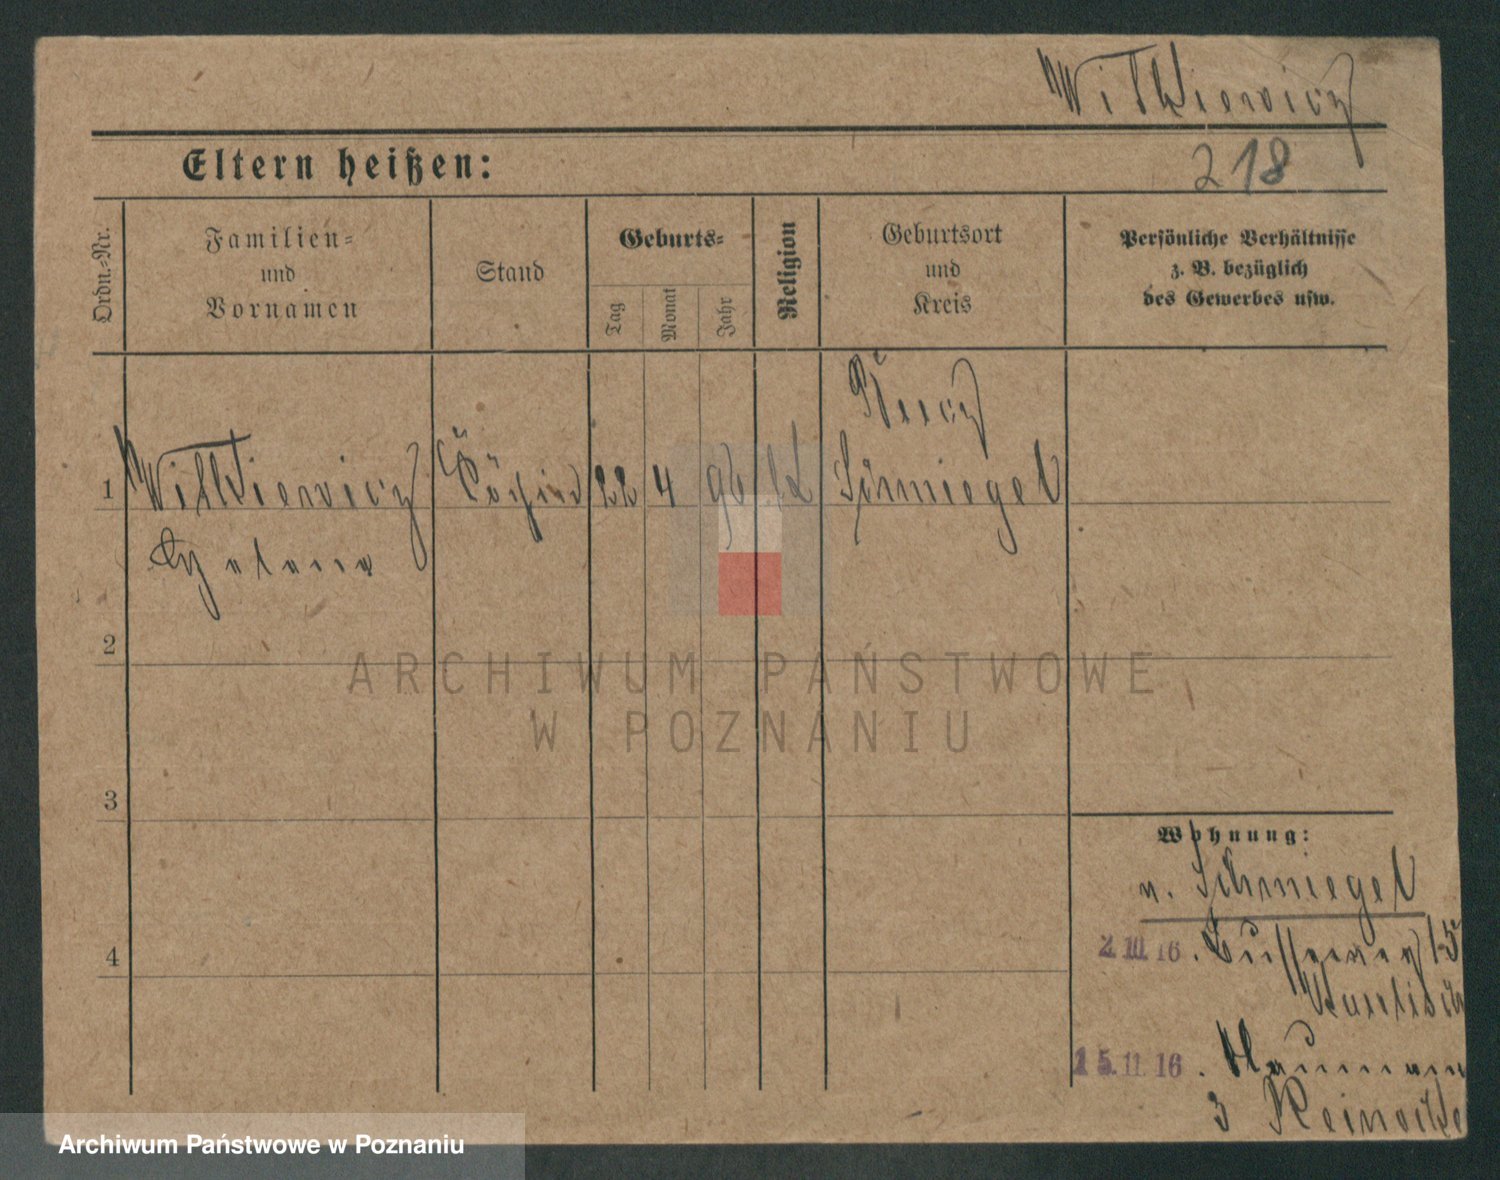 Witkiewicz
218
Eltern heißen:
Ordn.-Nr.
Familien-
und
Vornamen
Stand
Geburts-
Tag
Monat
Jahr
Religion
Geburtsort
und
Kreis
Persönliche Verhältnisse
z. B. bezüglich
des Gewerbes usw.
1 Witkiewicz Köchin 22 4 96 Schmiegel
Helena
2
3
4
Wohnung:
v. Schmiegel
2.10.16.
15
15.11.16.
3
ARCHIWUM PAŃSTWOWE
W POZNANIU
Archiwum Państwowe w Poznaniu